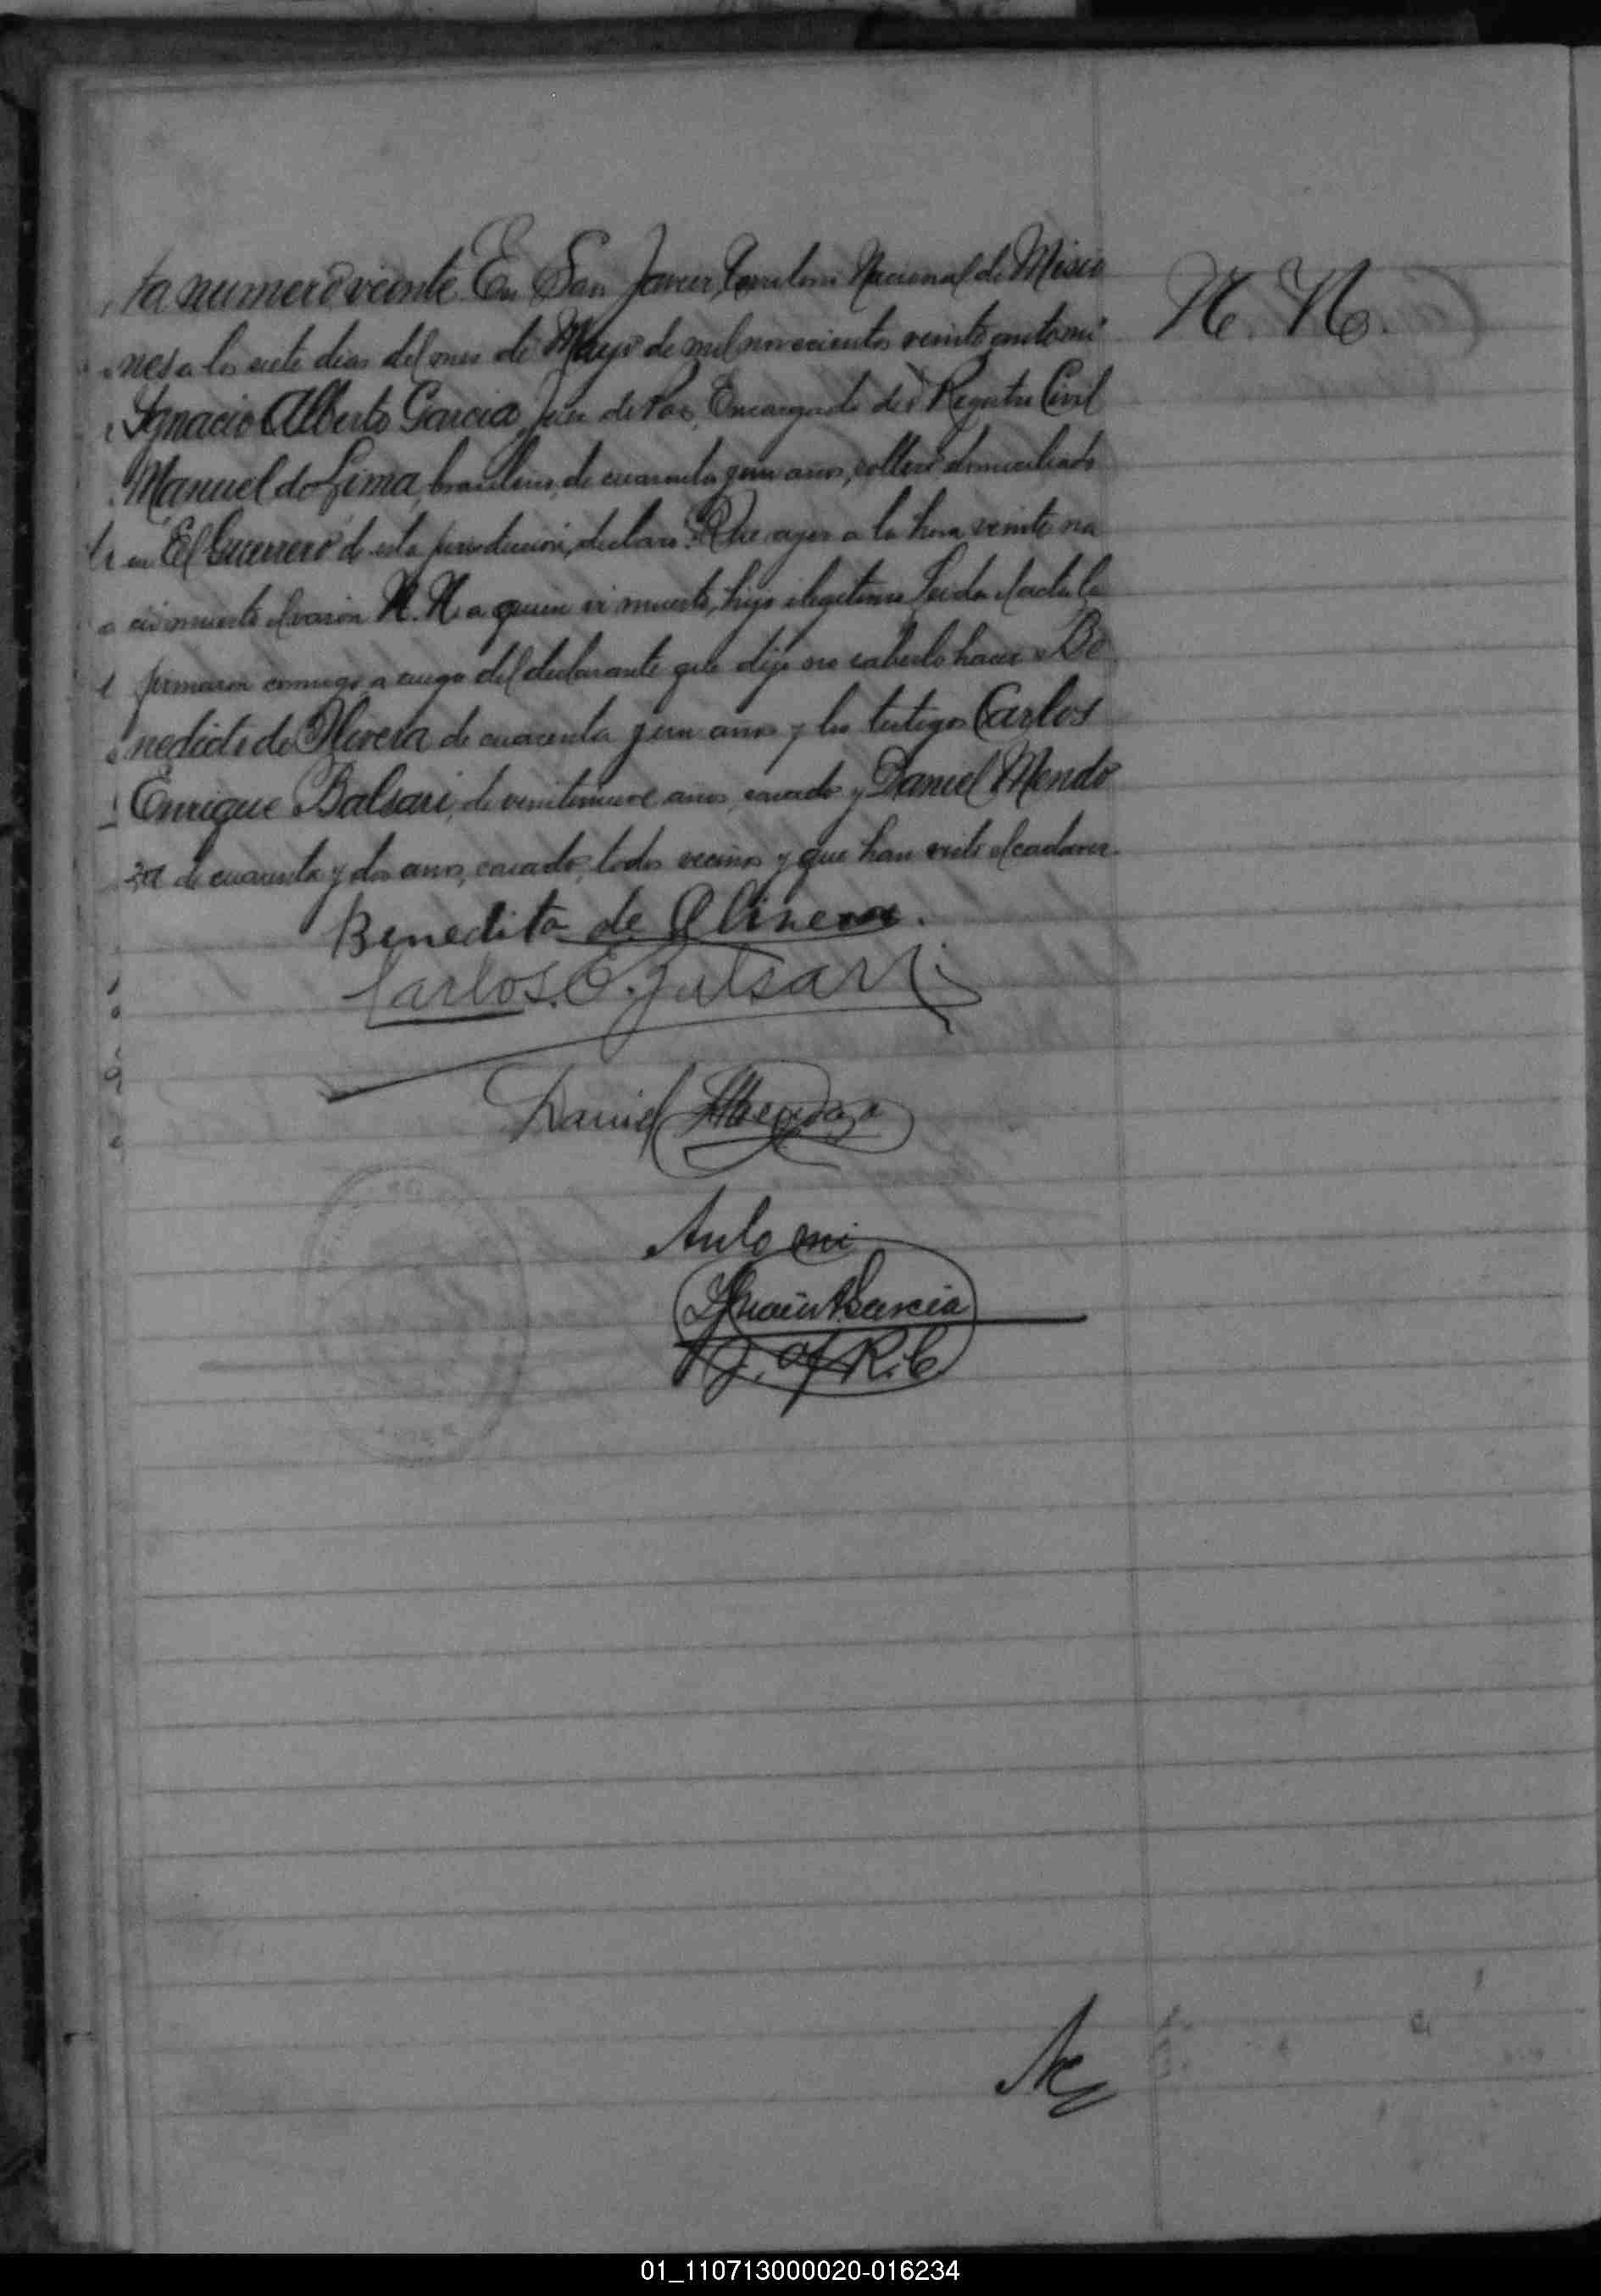 ta numero veinte. En San Javier, Territorio Nacional de Misio
nes a los siete dias del mes de Mayo de mil novecientos veinte ante mi
Ignacio Alberto Garcia, Juez de Paz, Encargado del Registro Civil
Manuel de Lima, brasilero, de cuarenta y un años, soltero domiciliado
en "El Guerrero" de esta jurisdiccion, declaró: Que ayer a la hora veinte na
ció muerto el varón N. N. a quien vi muerto, hijo ilegitimo Leida el acta la
firmaron conmigo, a ruego del declarante que dijo no saberlo hacer Be
nedicto de Olivera de cuarenta y un años y los testigos Carlos
Enrique Balsari, de veintinueve años, casado y Daniel Mendo
za de cuarenta y dos años, casado, todos vecinos y que han visto el cadaver.
N. N.
Benedito de Olivera.
Carlos. E. Balsari
Daniel Mendoza
Ante mi
Ignacio A Garcia
J. R. C.
01_110713000020-016234